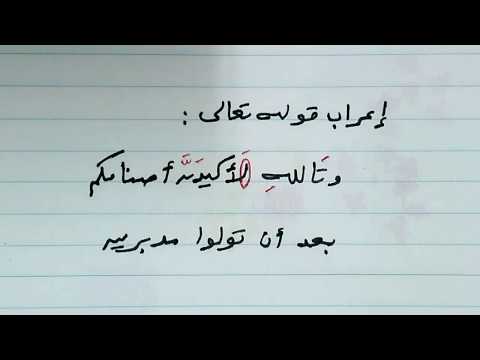 إعراب قوله تعالى :
وتَاللهِ لَأكيدَنَّ أصنامكم
بعد أن تولوا مدبرين